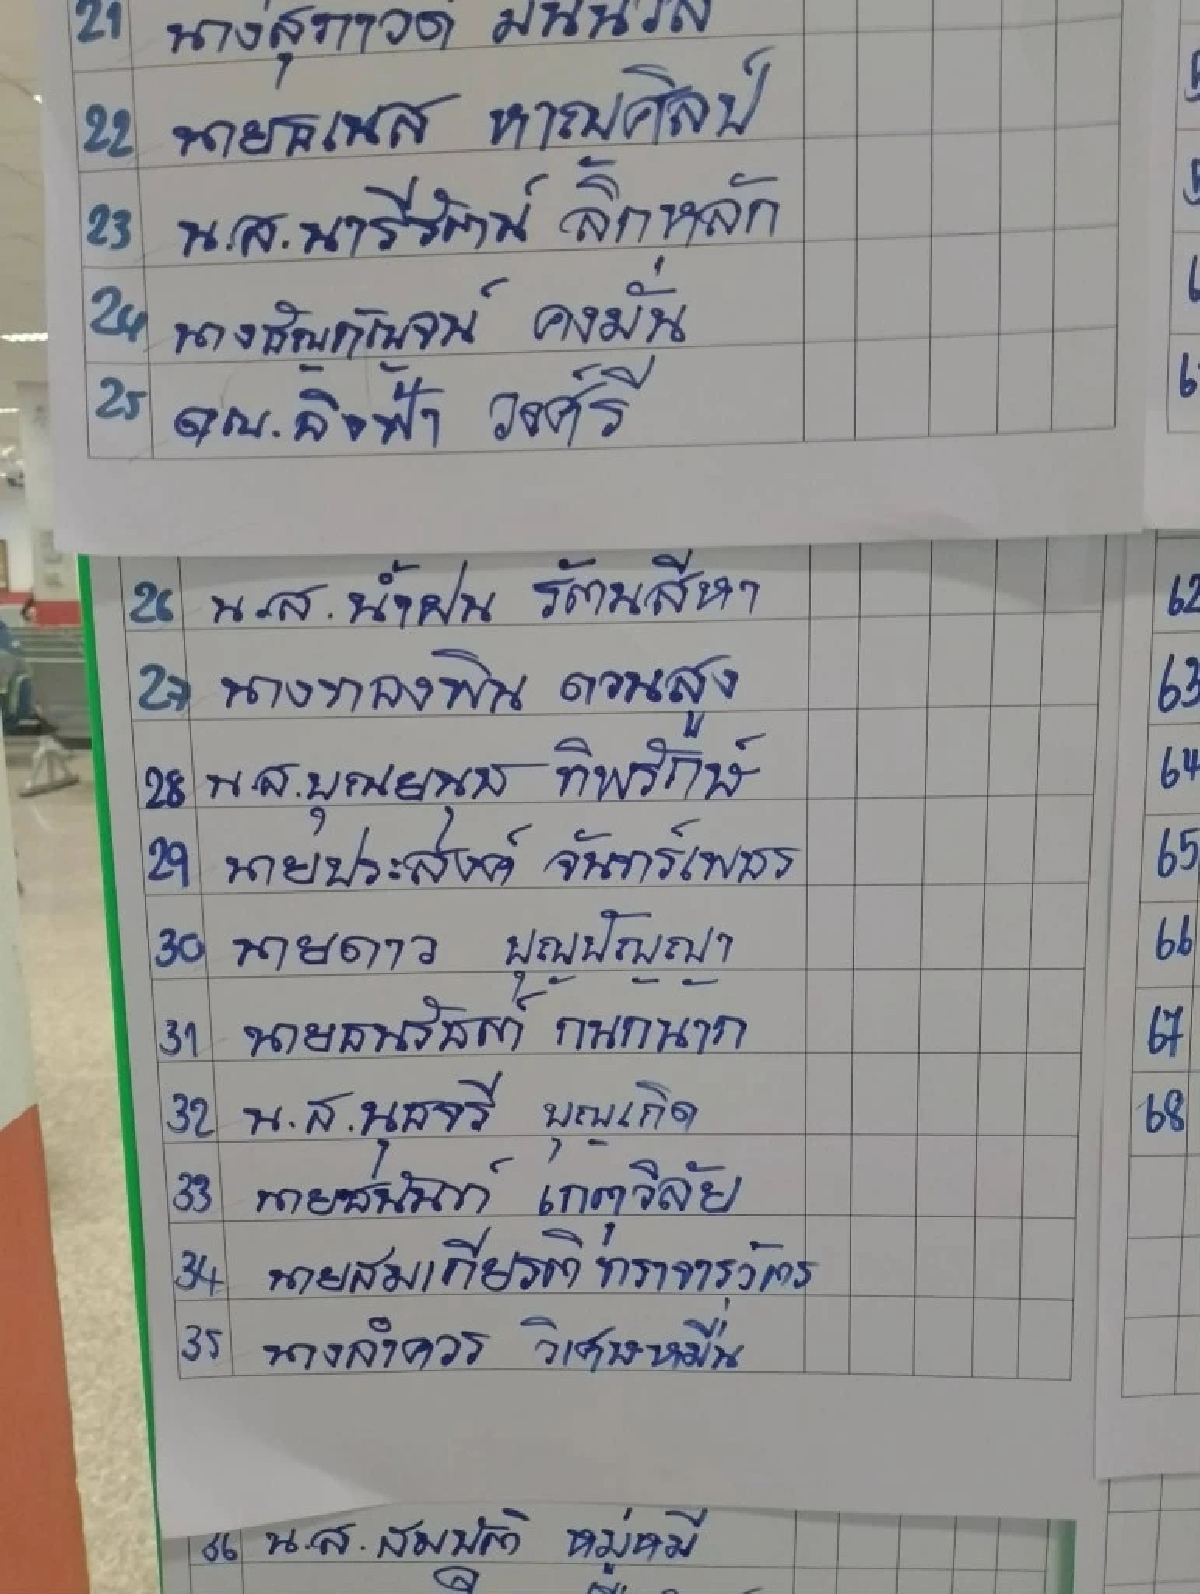 21 นางสุภาวดี
22 นายธเนส หาญศิลป์
23 น.ส.นารีรัตน์ ลึกหลัก
24 คงมั่น
25 ดญ.ลิ้งฟ้า วงศ์รี
26 น.ส.น้ำฝน รัตนสีหา
27 นางทองพิน ดวนสูง
28 น.ส.บุณยนุช ทิพรักษ์
29 นายประสงค์ จันทร์เพชร
30 นายดาว บุญปัญญา
31 นายธนรัชต์ กนกนาก
32 น.ส.นุชจรี บุญเกิด
33 นายชนันท์ เกตุวิลัย
34 นายสมเกียรติ ทราจารุวัตร
35 นางลำควร วิเศษหมื่น
36 น.ส.สมบัติ หมู่หมี
62
63
64
65
66
67
68